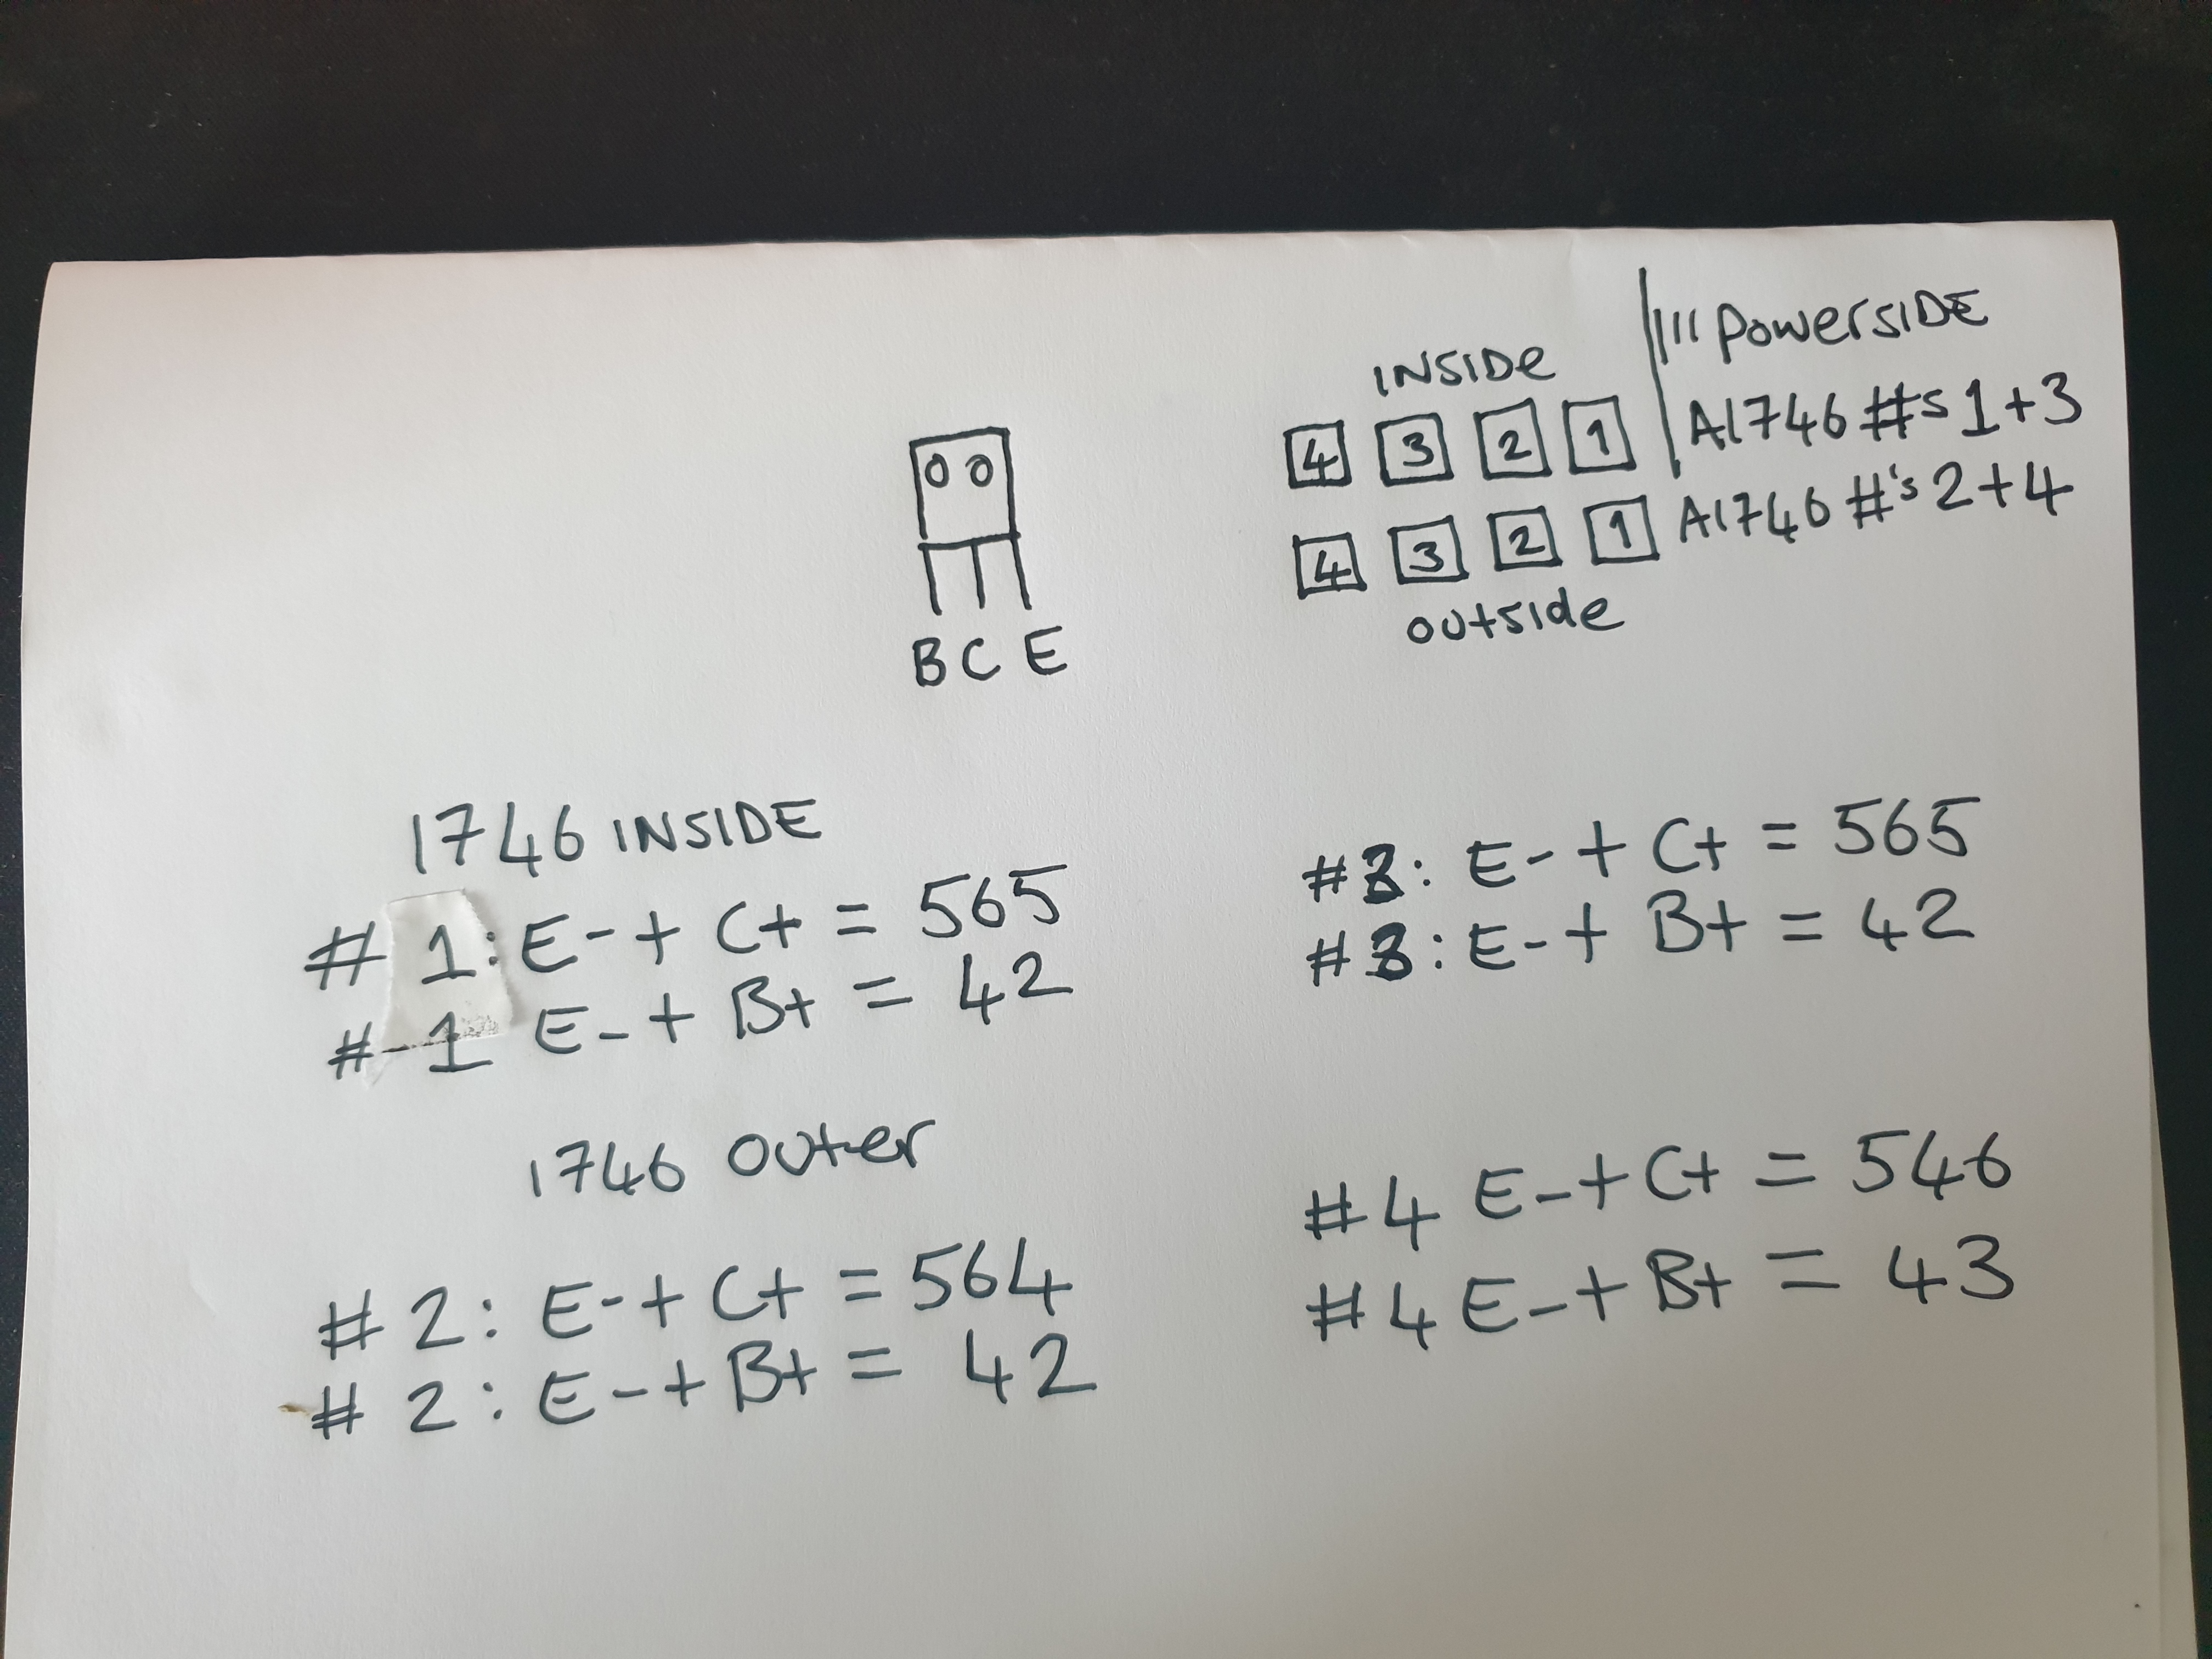 |||| PowerSIDE
INSIDe
4 3 2 1 A1746 #s 1+3
4 3 2 1 A1746 #'s 2+4
outside
OO
B C E
1746 INSIDE
# 1: E- + C+ = 565
# 1 E- + B+ = 42
#3: E- + C+ = 565
#3: E- + B+ = 42
1746 outer
# 2: E- + C+ = 564
# 2: E- + B+ = 42
#4 E- + C+ = 546
#4 E- + B+ = 43